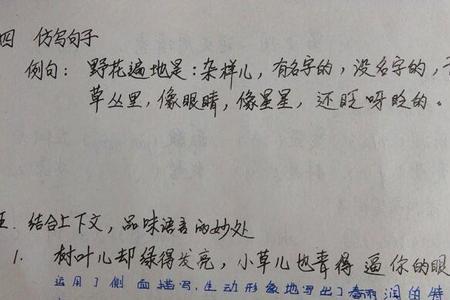 四 仿写句子
例句：野花遍地是：杂样儿，有名字的，没名字的，
草丛里，像眼睛，像星星，还眨呀眨的。
五. 结合上下文，品味语言的妙处
1. 树叶儿却绿得发亮，小草儿也青得逼你的眼
运用了侧面描写，生动形象地写出了春雨润的特